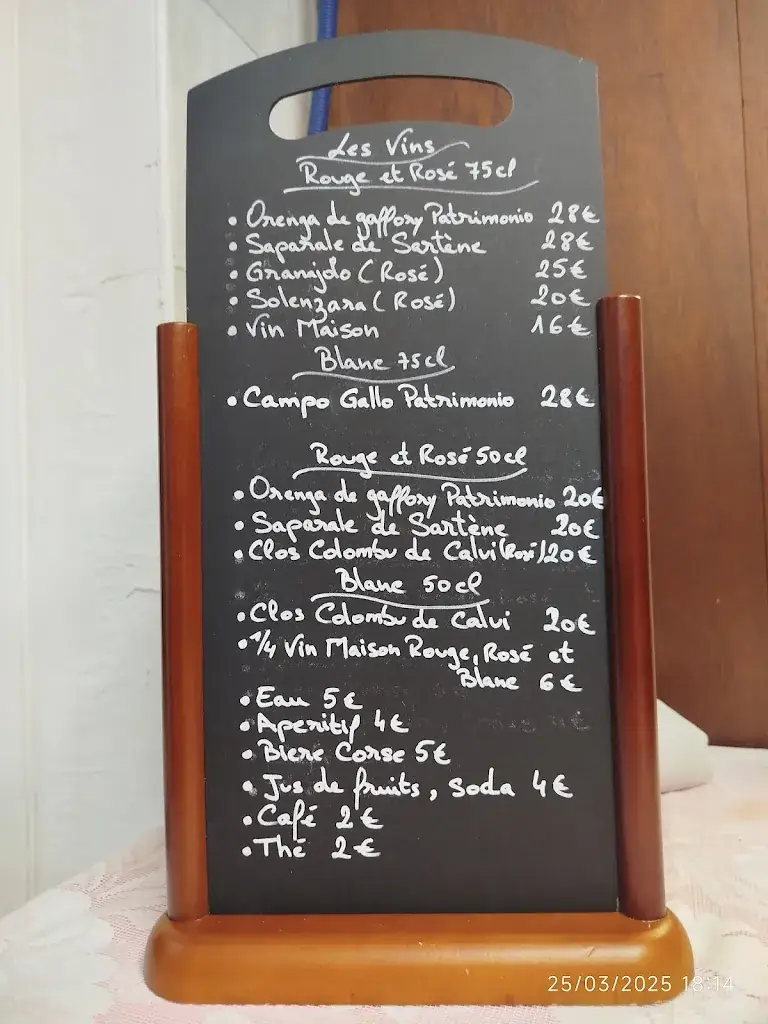 Les Vins
Rouge et Rosé 75cl
• Orenga de gaffory Patrimonio 28€
• Saparale de Sartène 28€
• Granajolo (Rosé) 25€
• Solenzara (Rosé) 20€
• Vin Maison 16€
Blanc 75cl
• Campo Gallo Patrimonio 28€
Rouge et Rosé 50cl
• Orenga de gaffory Patrimonio 20€
• Saparale de Sartène 20€
• Clos Colombu de Calvi (Rosé) 20€
Blanc 50cl
• Clos Colombu de Calvi 20€
• 1/4 Vin Maison Rouge, Rosé et
Blanc 6€
• Eau 5€
• Aperitif 4€
• Biere Corse 5€
• Jus de fruits, soda 4€
• Café 2€
• Thé 2€
25/03/2025 18:14